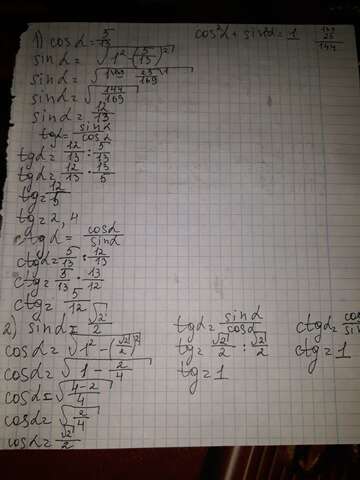 1) cos α = 5/13
cos²α + sin²α = 1
169
25
144
sin α = √(1² - (5/13)²)
sin α = √(169/169 - 25/169)
sin α = √(144/169)
sin α = 12/13
tg α = sin α/cos α
tg α = 12/13 : 5/13
tg α = 12/13 · 13/5
tg = 12/5
tg = 2,4
ctg α = cos α/sin α
ctg α = 5/13 : 12/13
ctg = 5/13 · 13/12
ctg = 5/12
2) sin α = √2/2
cos α = √(1² - (√2/2)²)
cos α = √(1 - 2/4)
cos α = √((4-2)/4)
cos α = √(2/4)
cos α = √2/2
tg α = sin α/cos α
tg = √2/2 : √2/2
tg = 1
ctg α = cos/sin
ctg = 1